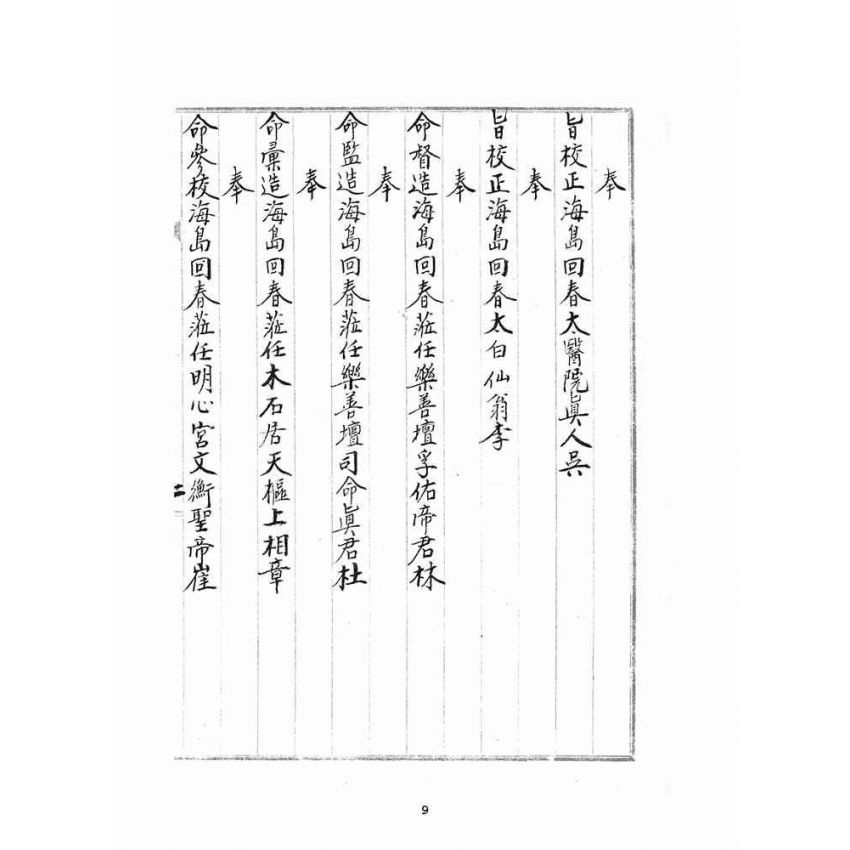 奉
旨校正海島回春太醫院眞人吳
奉
旨校正海島回春太白仙翁李
奉
命督造海島回春茳任樂善壇孚佑帝君林
奉
命監造海島回春茳任樂善壇司命眞君杜
奉
命彚造海島回春茳任木石居天樞上相章
奉
命參校海島回春茳任明心宮文衡聖帝崔
二
9